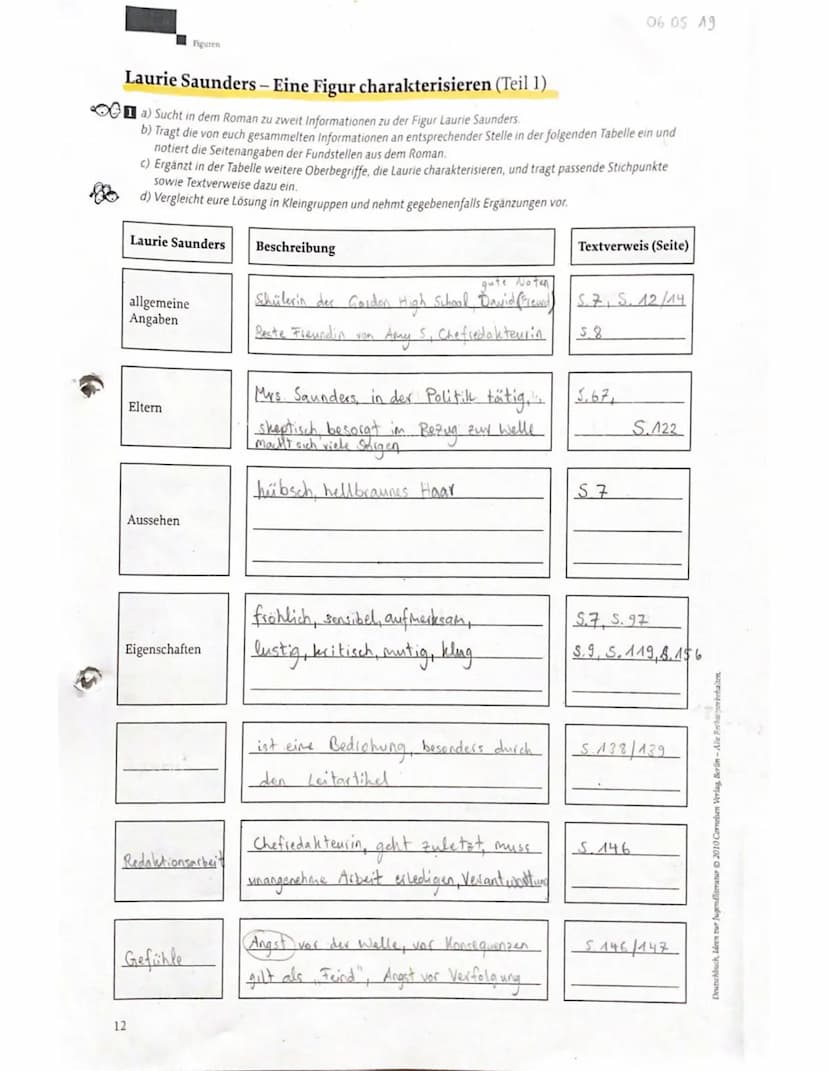 06 05 19
Figuren
Laurie Saunders – Eine Figur charakterisieren (Teil 1)
1 a) Sucht in dem Roman zu zweit Informationen zu der Figur Laurie Saunders.
b) Tragt die von euch gesammelten Informationen an entsprechender Stelle in der folgenden Tabelle ein und
notiert die Seitenangaben der Fundstellen aus dem Roman.
c) Ergänzt in der Tabelle weitere Oberbegriffe, die Laurie charakterisieren, und tragt passende Stichpunkte
sowie Textverweise dazu ein.
d) Vergleicht eure Lösung in Kleingruppen und nehmt gegebenenfalls Ergänzungen vor.
Laurie Saunders
Beschreibung
Textverweis (Seite)
allgemeine
Angaben
gute Noten
Shülerin der Gordon High School, David (Freund)
Beste Freundin von Amy S, Chefredakteurin
S.7, S. 12/14
S.8
Eltern
Mrs. Saunders, in der Politik tätig,
skeptisch, besorgt im Bezug zur Welle
macht sich viele Sorgen
S.67,
S.122
Aussehen
hübsch, hellbraunes Haar
S.7
Eigenschaften
fröhlich, sensibel, aufmerksam,
lustig, kritisch, mutig, klug
S.7, S.97
S.9, S.119, S.156
ist eine Bedrohung, besonders durch
den Leitartikel
S.138/139
Redaktionsarbeit
Chefredakteurin, geht zuletzt, muss
unangenehme Arbeit erledigen, Verantwortung
S.146
Gefühle
Angst vor der Welle, vor Konsequenzen
gilt als „Feind", Angst vor Verfolgung
S.146/147
12
Deutschbuch, Ideen zur Jugendliteratur © 2010 Cornelsen Verlag, Berlin – Alle Rechte vorbehalten.